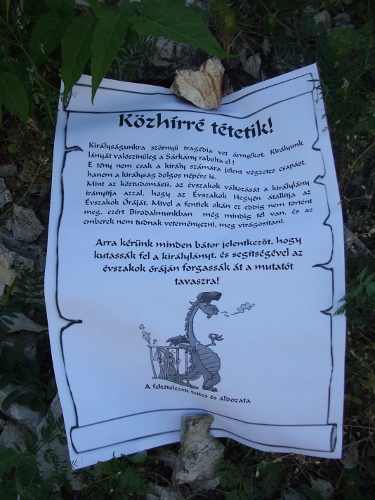 Közhírré tétetik!
Királyságunkra szörnyű tragédia vet árnyékot. Királyunk
lányát valószínűleg a Sárkány rabolta el!
E tény nem csak a király számára jelent végzetes csapást,
hanem a királyság dolgos népére is.
Mint az köztudomású, az évszakok változását a királylány
irányítja azzal, hogy az Évszakok Hegyén átállítja az
Évszakok Óráját. Mivel a fentiek okán ez eddig nem történt
meg, ezért Birodalmunkban még mindig tél van, és az
emberek nem tudnak veteményezni, meg virágosítani.
Arra kérünk minden bátor jelentkezőt, hogy
kutassák fel a királylányt, és segítségével az
évszakok óráján forgassák át a mutatót
tavaszra!
A feltételezett tettes és áldozata